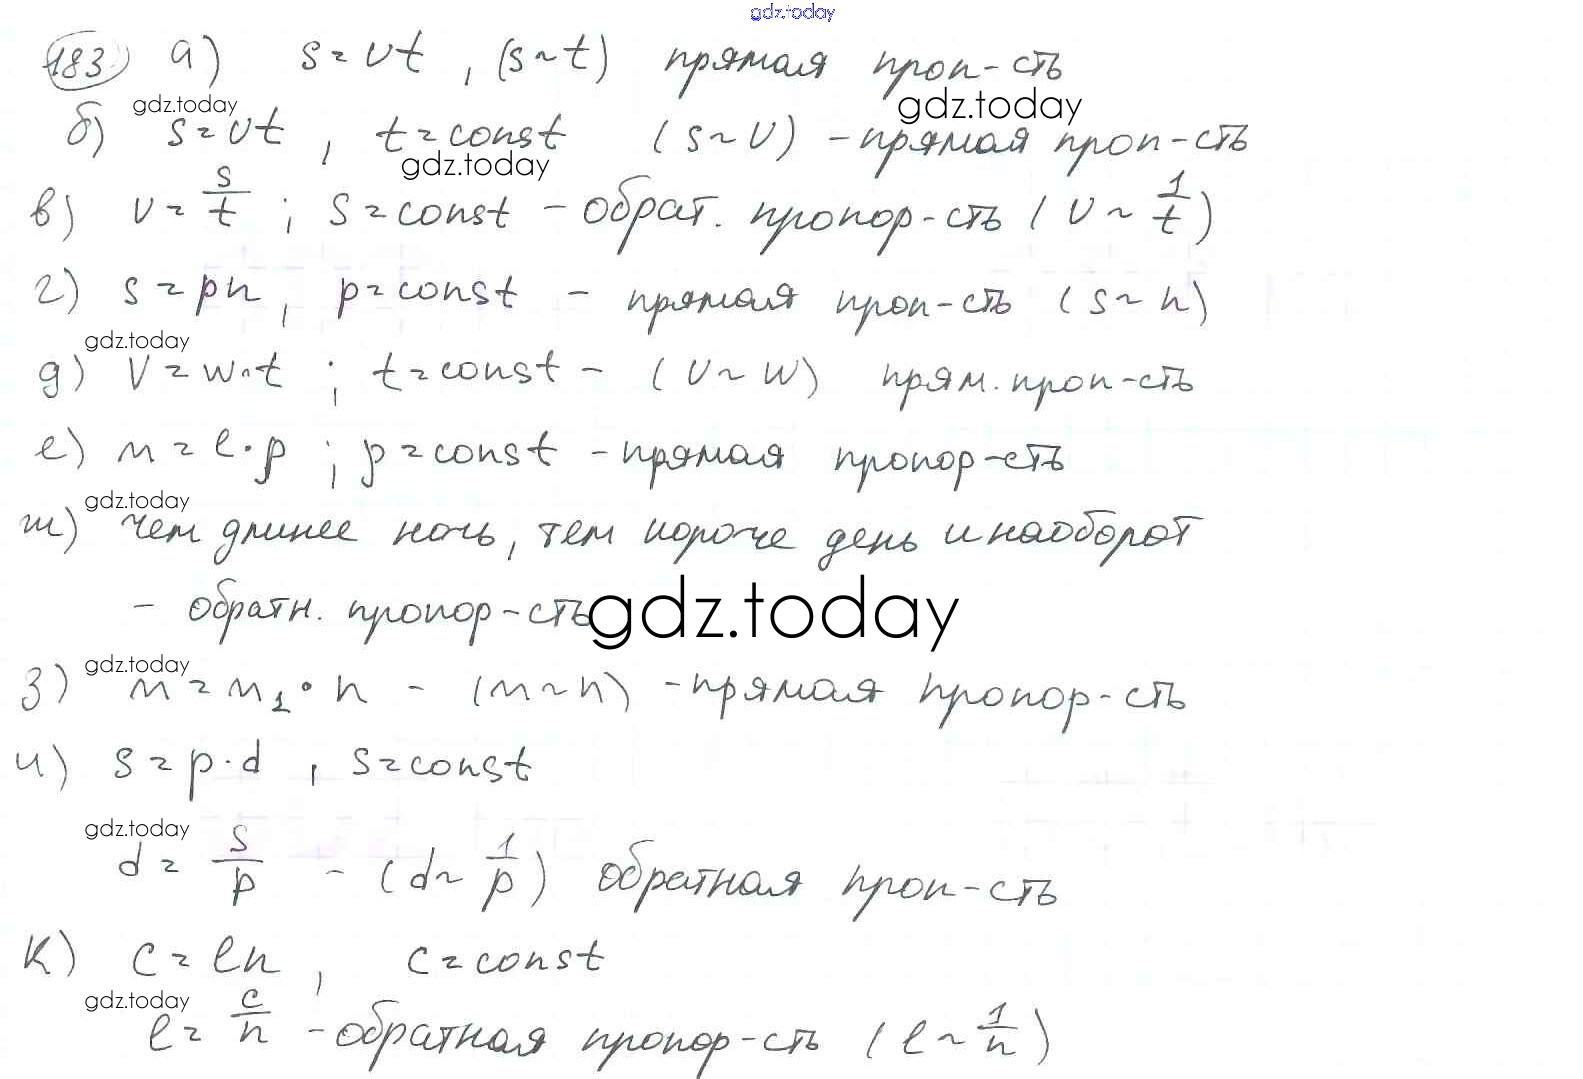 gdz.today
183 а) s = vt , (s ~ t) прямая проп-сть
gdz.today gdz.today
б) s = vt , t = const (s ~ v) - прямая проп-сть
gdz.today
в) v = s/t ; s = const - обрат. пропор-сть ( v ~ 1/t )
г) s = pn , p = const - прямая проп-сть ( s ~ n )
gdz.today
д) V = w·t ; t = const - ( v ~ w ) прям. проп-сть
е) m = l·p ; p = const - прямая пропор-сть
gdz.today
ж) чем длинее ночь, тем короче день и наоборот
- обратн. пропор-сть gdz.today
gdz.today
з) m = m1 · n - (m ~ n) - прямая пропор-сть
и) s = p·d , s = const
gdz.today
d = s/p - (d ~ 1/p) обратная проп-сть
к) c = ln , c = const
gdz.today
l = c/n - обратная пропор-сть ( l ~ 1/n )